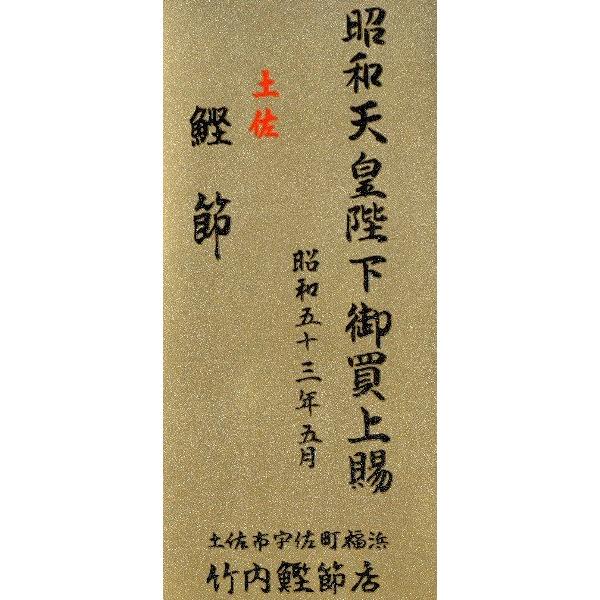 昭和天皇陛下御買上賜
昭和五十三年五月
土佐
鰹節
土佐市宇佐町福浜
竹内鰹節店